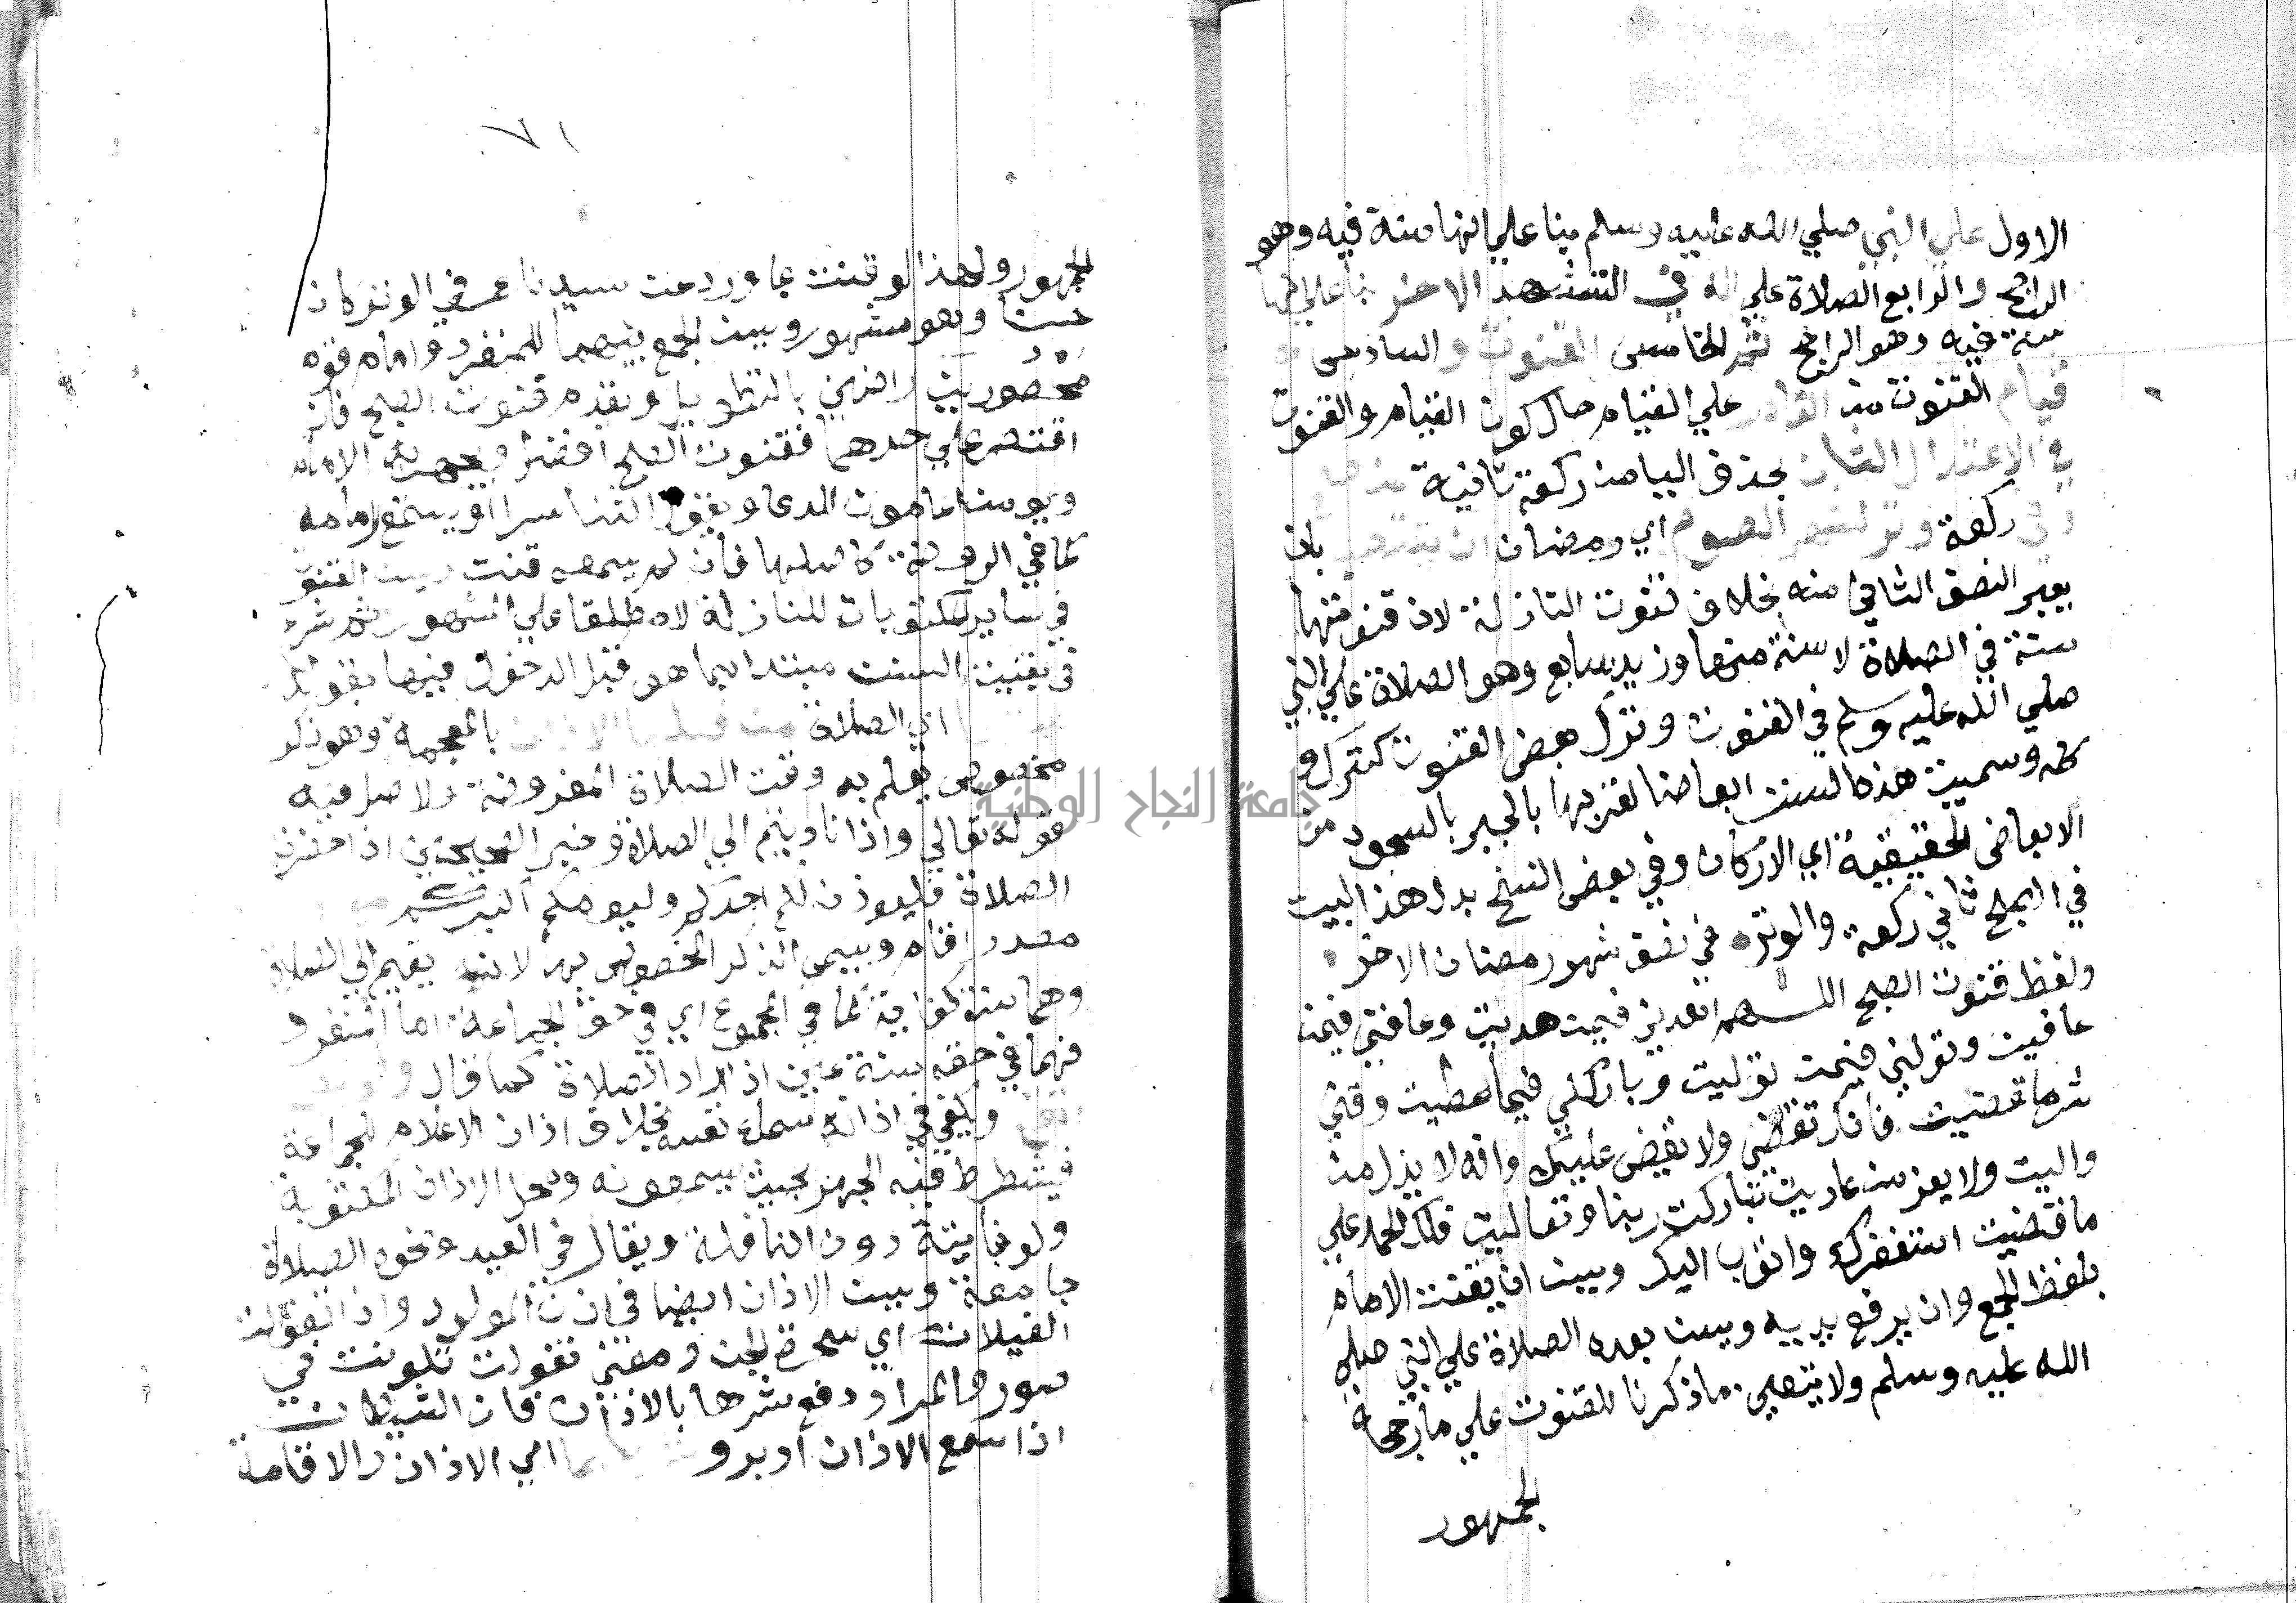 الاول علي النبي صلي الله عليه وسلم بنا علي انها سنة فيه وهو
الراجح والرابع الصلاة علي اله في التشهد الاخر بنا علي انها
سنة فيه وهو الراجح ثم الخامس القنوت والسادس
قيام القنوت من القادر علي القيام حال كون القيام والقنوت
في الاعتدال الثان بحذف اليا من ركعة ثانية
وفي ركعة وتر لشهر الصوم اي رمضان ان ينتصف بان
يعبر النصف الثاني منه بخلاف قنوت النازلة لان قنوتها
سنة في الصلاة لا سنة منها وزيد سابع وهو الصلاة علي النبي
صلي الله عليه وسلم في القنوت وترك بعض القنوت كترك
كله وسميت هذه السنن ابعاضا لقربها بالجبر بالسجود من
الابعاض الحقيقية اي الاركان وفي بعض النسخ بدل هذا البيت
في الصبح ثاني ركعة والوتر في نصف شهر رمضان الاخر
ولفظ قنوت الصبح اللهم اهدني فيمن هديت وعافني فيمن
عافيت وتولني فيمن توليت وبارك لي فيما اعطيت وقني
شر ما قضيت فانك تقضي ولا يقضى عليك وانه لا يذل من
واليت ولا يعز من عاديت تباركت ربنا وتعاليت فلك الحمد علي
ما قضيت استغفرك واتوب اليك ويسن ان يقنت الامام
بلفظ الجمع وان يرفع يديه ويسن بعده الصلاة علي النبي صلي
الله عليه وسلم ولا يتعين ما ذكرنا للقنوت علي ما رجحه
الجمهور
٧١
الجمهور ولهذا لو قنت بما ورد عن سيدنا عمر في الوتر كان
حسنا وهو مشهور ويسن الجمع بينهما للمنفرد وامام قوم
محصورين راضين بالتطويل ويقدم قنوت الصبح فان
اقتصر علي احدهما فقنوت الصبح افضل ويجهر به الامام
ويومن الماموم الدعا ويقول الثنا سرا او يستمع لامامه
كما في الروضة كاصلها فان لم يسمعه قنت ويسن القنوت
في ساير المكتوبات للنازلة لا مطلقا علي المشهور ثم شرع
في بقية السنن مبتدا بما هو قبل الدخول فيها بقوله
اي الصلاة من قبلها الاذان بالمعجمة وهو ذكر
مخصوص يعلم به وقت الصلاة المفروضة والاصل فيه
قوله تعالي واذا ناديتم الي الصلاة وخبر الصحيحين اذا حضرت
الصلاة فليوذن لكم احدكم وليومكم اكبركم
مصدر اقام وسمي الذكر المخصوص به لانه يقيم الي الصلاة
وهما سنتا كفاية كما في المجموع اي في حق الجماعة اما المنفرد
فهما في حقه سنة عين اذا اراد الصلاة كما قال
ويكفي في اذانه سماع نفسه بخلاف اذان الاعلام للجماعة
فيشترط فيه الجهر بحيث يسمعونه ومحل الاذان المكتوبة
ولو فايتة دون النافلة ويقال في العيد ونحوه الصلاة
جامعة ويسن الاذان ايضا في اذن المولود واذا تغولت
الغيلان اي سحرة الجن ومعني تغولت تلونت في
صور والمراد دفع شرها بالاذان فان الشيطان
اذا سمع الاذان ادبر و اي الاذان والاقامة
جامعة النجاح الوطنية